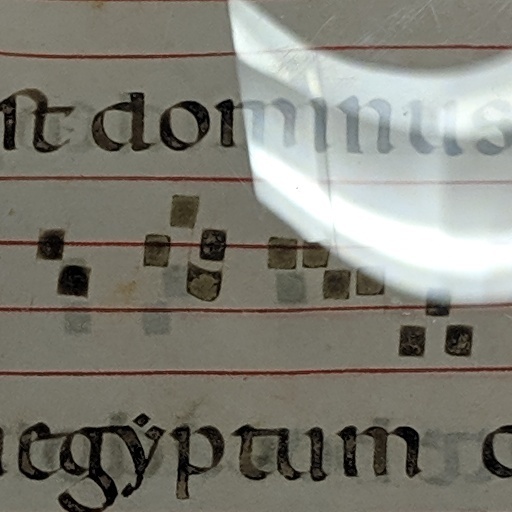 st dominus
aegẏptum